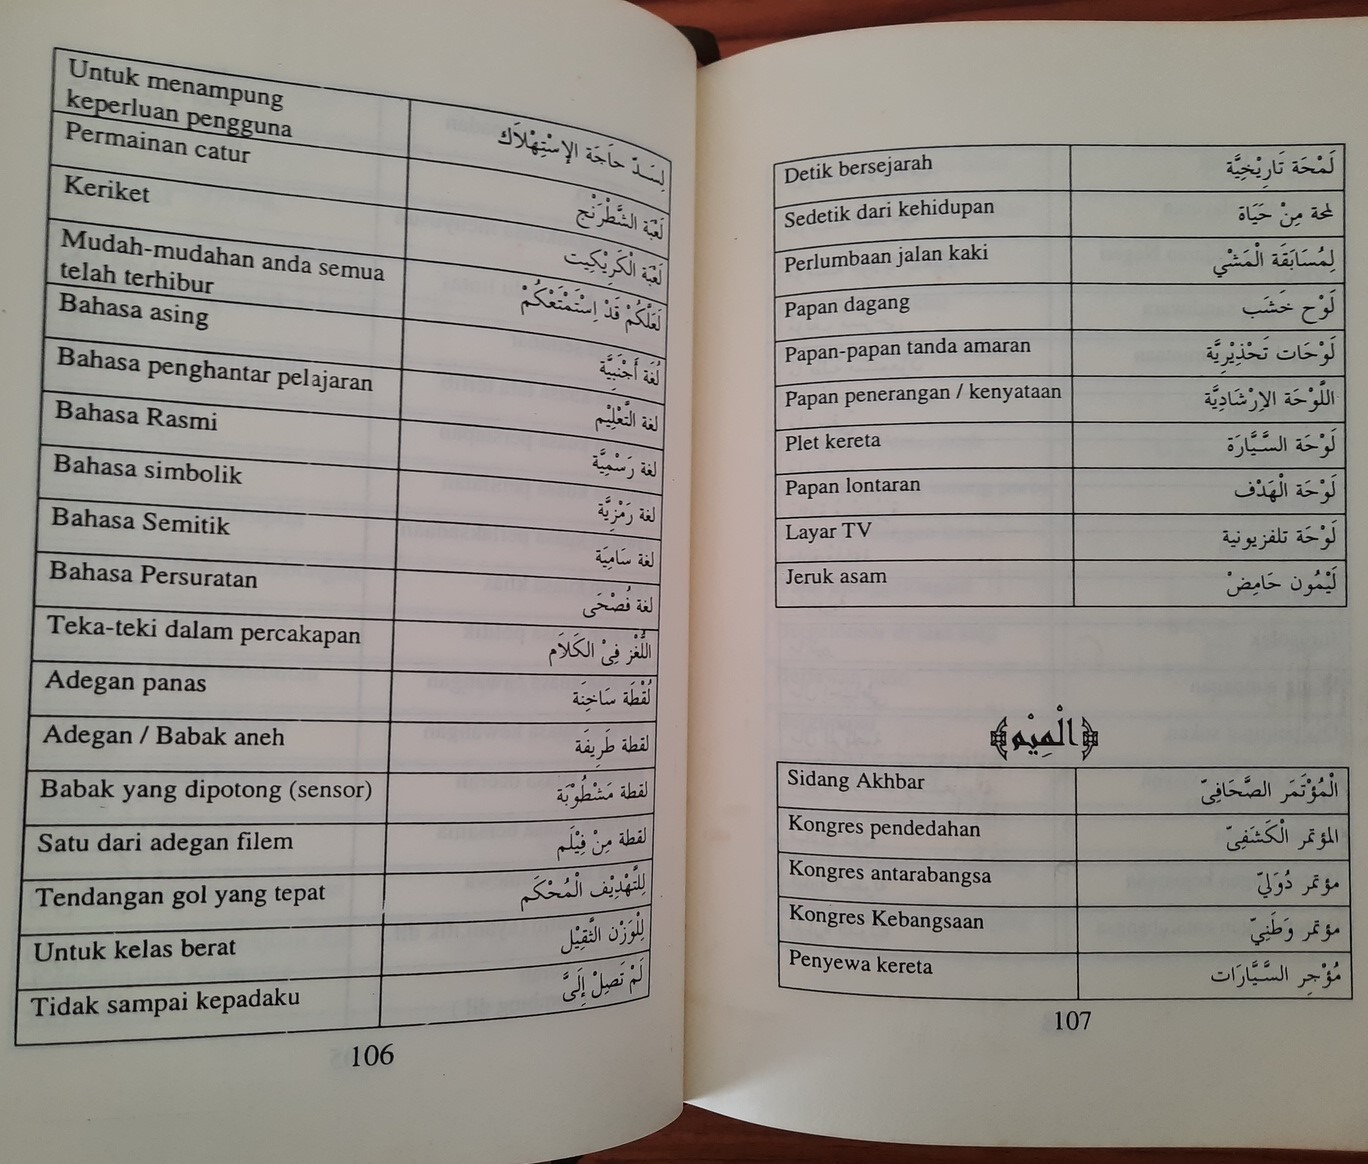 Untuk menampung
keperluan pengguna
لِسَدّ حاَجَة الإسْتِهْلاَك
Permainan catur
لَعْبَة الشَّطْرَنْج
Keriket
لَعْبَة الْكَرِيْكِيت
Mudah-mudahan anda semua
telah terhibur
لَعَلَّكُمْ قَدْ اِسْتَمْتَعْكُمْ
Bahasa asing
لُغَة أَجْنَبِيَّة
Bahasa penghantar pelajaran
لغة التَّعْلِيْم
Bahasa Rasmi
لغة رَسْمِيَّة
Bahasa simbolik
لغة رَمْزِيَّة
Bahasa Semitik
لغة سَامِيَة
Bahasa Persuratan
لغة فُصْحَى
Teka-teki dalam percakapan
اللُّغْز فِىْ الكَلاَم
Adegan panas
لُقْطَة سَاخِنَة
Adegan / Babak aneh
لقطة طَرِيفَة
Babak yang dipotong (sensor)
لقطة مَشْطُوْبَة
Satu dari adegan filem
لقطة مِنْ فِيْلَم
Tendangan gol yang tepat
لِلتَّهْدِيْف الْمُحْكَم
Untuk kelas berat
لِلْوَزْن الثَّقِيْل
Tidak sampai kepadaku
لَمْ تَصِلْ إِلَىَّ
106
Detik bersejarah
لَمْحَة تَارِيْخِيَّة
Sedetik dari kehidupan
لمحة مِنْ حَيَاة
Perlumbaan jalan kaki
لِمُسَابَقَة الْمَشْي
Papan dagang
لَوْح خَشَب
Papan-papan tanda amaran
لَوْحَات تَحْذِيْرِيَّة
Papan penerangan / kenyataan
اللَّوْحَة الاِرْشَادِيَّة
Plet kereta
لَوْحَة السَّيَّارَة
Papan lontaran
لَوْحَة الْهَدْف
Layar TV
لَوْحَة تلفزيونية
Jeruk asam
لَيْمُون حَامِضْ
الْمِيْم
Sidang Akhbar
الْمُؤْتَمَر الصَّحَافِىّ
Kongres pendedahan
المؤتمر الْكَشَفِىّ
Kongres antarabangsa
مؤتمر دُوَلِيّ
Kongres Kebangsaan
مؤتمر وَطَنِيّ
Penyewa kereta
مُؤْجِر السَّيَّارَات
107